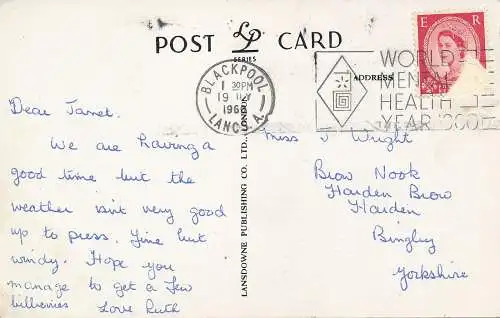 POST LP CARD
SERIES
E R
BLACKPOOL
1 30PM
19 JLY
1960
LANCS. A.
WORLD
MENTAL
HEALTH
YEAR
ADDRESS
LANSDOWNE PUBLISHING CO. LTD., LONDON
Dear Janet.
We are having a
good time but the
weather isn't very good
up to press. Fine but
windy. Hope you
manage to get a few
bilberries Love Ruth
Miss J Wright
Brow Nook
Harden Brow
Harden
Bingley
Yorkshire